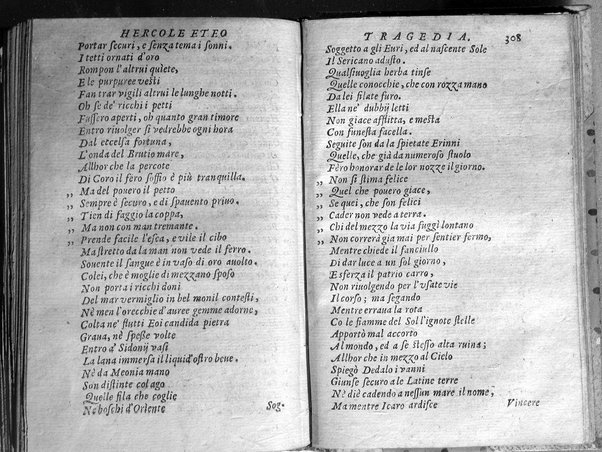 HERCOLE ETEO
Portar securi, e senza tema i sonni.
I tetti ornati d'oro
Rompon l'altrui quiete,
E le purpuree vesti
Fan trar vigili altrui le lunghe notti.
Oh se de' ricchi i petti
Fussero aperti, oh quanto gran timore
Entro riuolger si vedrebbe ogni hora
Dal eccelsa fortuna,
L'onda del Brutio mare,
Allhor che la percote
Di Coro il fèro soffio è più tranquilla.
„ Ma del pouero il petto
„ Sempre è securo, e di spauento priuo.
„ Tien di faggio la coppa,
„ Ma non con man tremante.
„ Prende facile l'esca, e vile il cibo
Ma stretto da la man non vede il ferro.
Souente il sangue è in vaso di oro auolto.
Colei, che è moglie di mezzano sposo
Non porta i ricchi doni
Del mar vermiglio in bel monil contesti,
Nè men l'orecchie d'auree gemme adorne,
Colta ne' flutti Eoi candida pietra
Graua, nè spesse volte
Entro a' Sidonij vasi
La lana immersa il liquid'ostro beue.
Nè da Meonia mano
Son distinte col ago
Quelle fila che coglie
Ne boschi d'Oriente
Sog-
TRAGEDIA. 308
Soggetto a gli Euri, ed al nascente Sole
Il Sericano adusto.
Qualsiuoglia herba tinse
Quelle conocchie, che con rozza mano
Da lei filate furo.
Ella ne' dubbij letti
Non giace afflitta, e mesta
Con funesta facella.
Seguite son da la spietate Erinni
Quelle, che già da numeroso stuolo
Fèro honorar de le lor nozze il giorno.
„ Non si stima felice
„ Quel che pouero giace,
„ Se quei, che son felici
„ Cader non vede a terra.
„ Chi del mezzo la via fuggì lontano
„ Non correrà gia mai per sentier fermo,
Mentre chiede il fanciullo
Di dar luce a un sol giorno,
E sferza il patrio carro,
Non riuolgendo per l'vsate vie
Il corso; ma segando
Mentre erraua la rota
Co le fiamme del Sol l'ignote stelle
Apportò mal accorto
Al mondo, ed a se stesso alta ruina;
Allhor che in mezzo al Cielo
Spiegò Dedalo i vanni
Giunse securo ale Latine terre
Nè diè cadendo a nessun mare il nome,
Ma mentre Icaro ardisce
Vincere